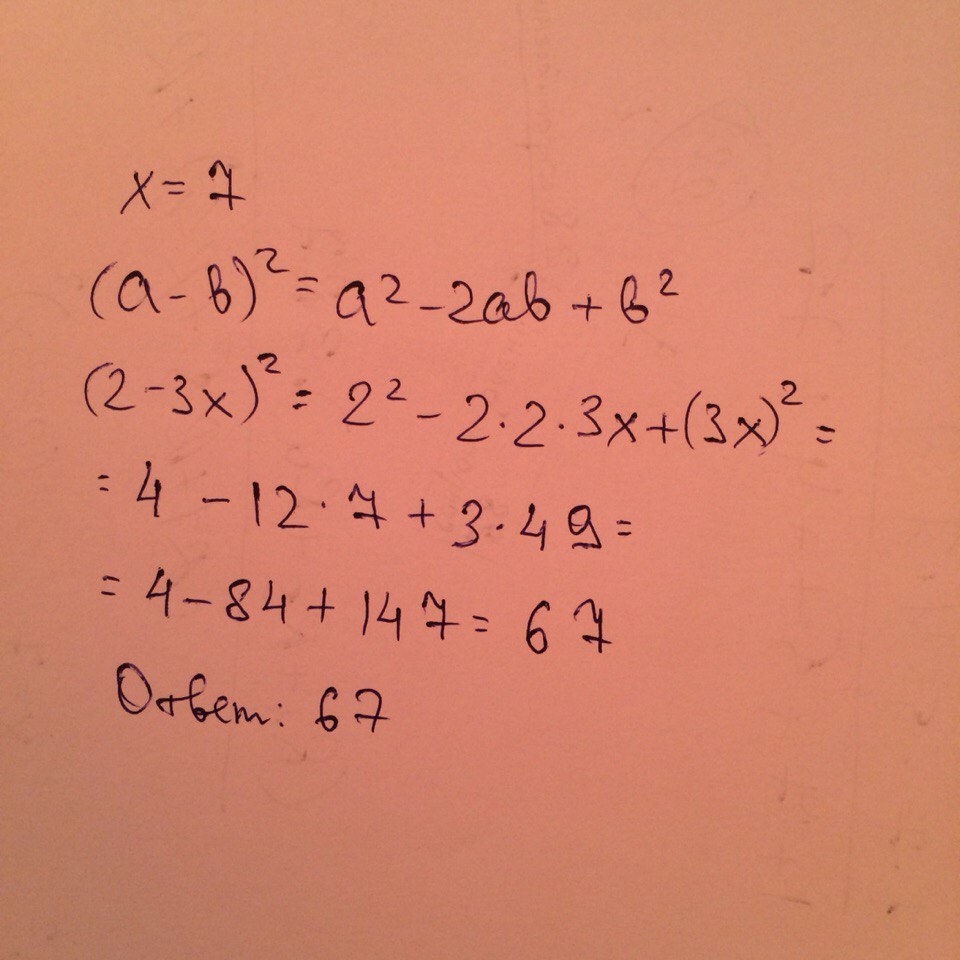 x = 7
(a - b)² = a² - 2ab + b²
(2 - 3x)² = 2² - 2·2·3x + (3x)² =
= 4 - 12·7 + 3·49 =
= 4 - 84 + 147 = 67
Ответ: 67